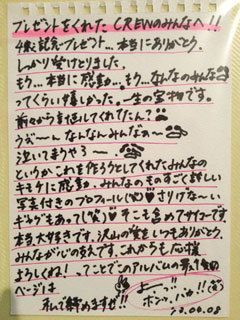 プレゼントをくれた CREWのみんなへ!!
4歳記念プレゼント…本当にありがとう。
しっかり受けとりました。
もう…本当に感動…もう…なんなのみんな
ってくらい嬉しかった。一生の宝物です。
前々から してくれてたん?
うぅ〜 なんなんみんなぁ〜
泣いてまうやろ〜。
というかこれを作ろうとしてくれたみんなの
キモチに感動。みんなのものすごく詳しい
写真付きのプロフィール(笑)♥さりげな〜い
ギャグもあって(笑)そこも含めてサイコーです
本当大好きです。沢山の愛をいつもありがとう。
みんなが心の支えです。これからも応援
よろしくね!ってことでこのアルバムの最後の
ページは
私で締めますぜ!!
よーーっ
ポンッ。バゥ!!
23.00.08